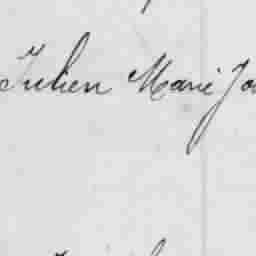 Julien Marie Jo